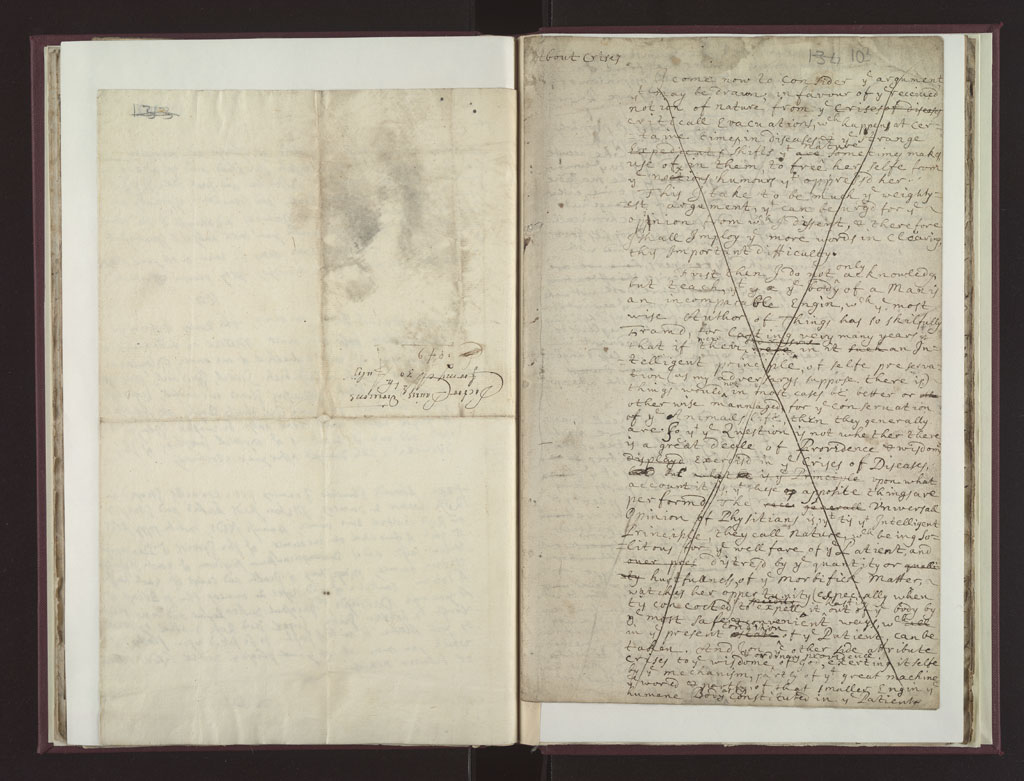 133
Doctor Davis's Directions
for my Le
July
1679
About Crises
134 101
I come now to consider yͤ argument
yͭ may be drawn in favour of yͤ received
notion of nature from yͤ Crises of diseases
critticall Evacuations, wᶜʰ happens at Cer-
taine times in diseases & yͤ strange
Expedients shifts yͭ are nature sometimes makes
use of in them, to free her selfe from
yͤ noxious humours yͭ oppress'd her.
This I take to be much yͤ weighty-
est argement, yͭ can be urg'd for yͤ
opinion from wᶜʰ I dissent, & therefore
shall Imploy yͤ more words in Clearing
this Important difficulty.
First then, I do not only acknowledg
but teach, yͭ yͤ body of a Man is
an incomparable Engin, wᶜʰ yͤ most
wise Author of Things has so skilfully
fram'd, for lasting very many years,
that if there were in it such an In-
telligent principle, of selfe preserva-
tion (as my adversarys suppose, there is)
things would not in most cases be better or
otherwise mannaged for yͤ Conservation
of yͤ Animals life, then they generally
are. So yͭ yͤ Question is not whether there
is a great deele of Providence & wisdom
display'd Exercis'd in yͤ Crises of Diseases,
But what is yͤ Principle upon what
account it is, yͭ these apposite things are
perform'd. The generall Universall
Opinion of Physitians is, yͭ tis yͭ Intelligent
Principle, they call Nature, wᶜʰ being So-
litous for yͤ wellfare of yͤ Patient, and
distres'd by yͤ quantity or
hurtfullness, of yͤ Morbifick Matter,
watches her oppertunity (Especially when
tis concocted) to expell it, out of yͤ body by
yͤ most safe & convenient ways, wᶜʰ
in yͤ present state condition of yͤ Patient, can be
taken. And I on yͤ other side attribute
Crises to yͤ wisdome, of God, exerting it selfe
by yͤ mechanism, partly of yͤ great machine
yͤ world & partly of that smaller Engin yͤ
humane Body Constituted in yͤ Patients